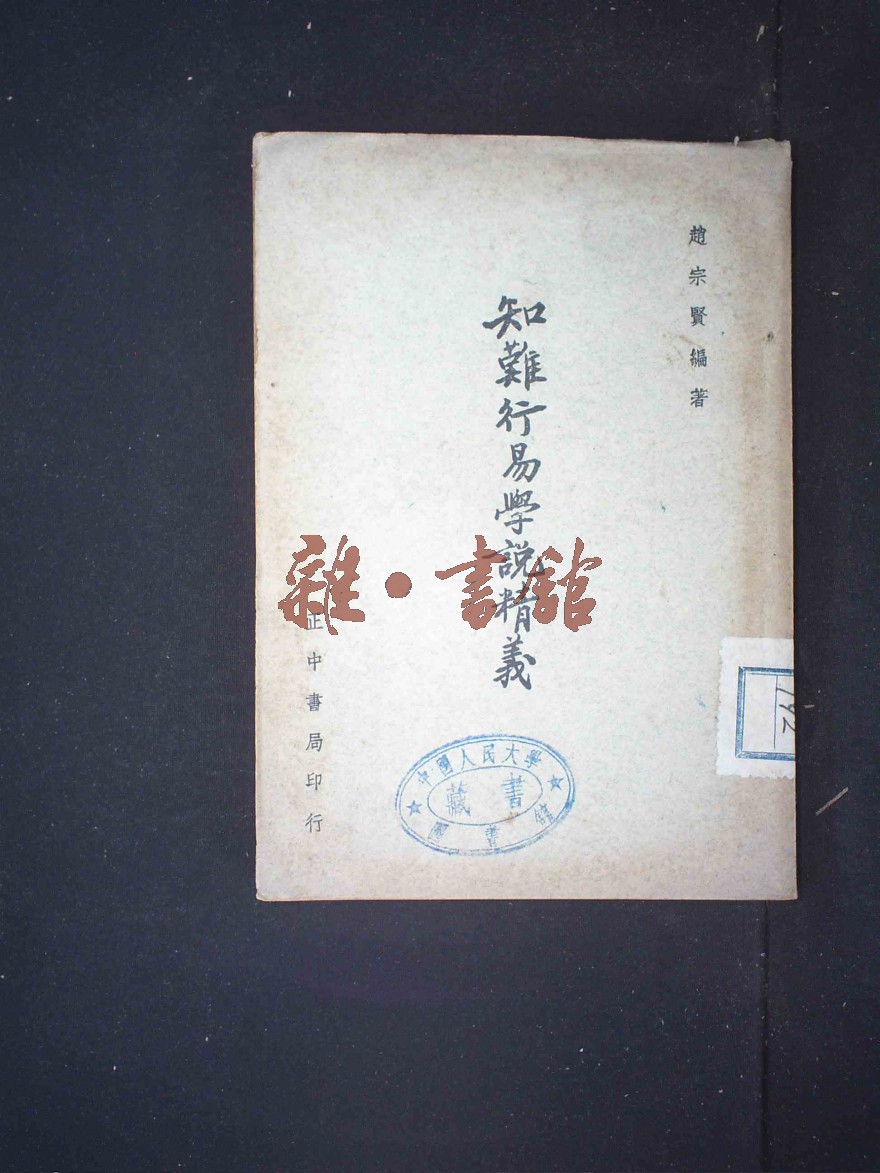 趙宗賢編著
知難行易學說精義
正中書局印行
雜·書館
中國人民大學
藏書
圖書館
192